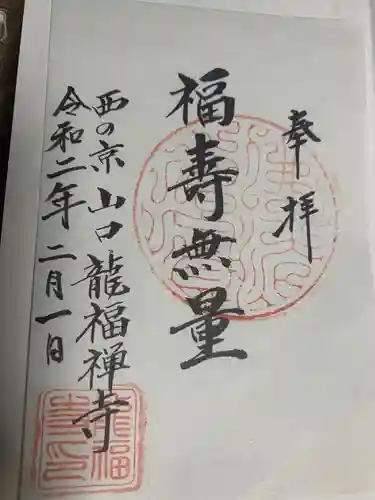 奉拝
福壽無量
西の京山口龍福禅寺
令和二年二月一日
龍福寺印